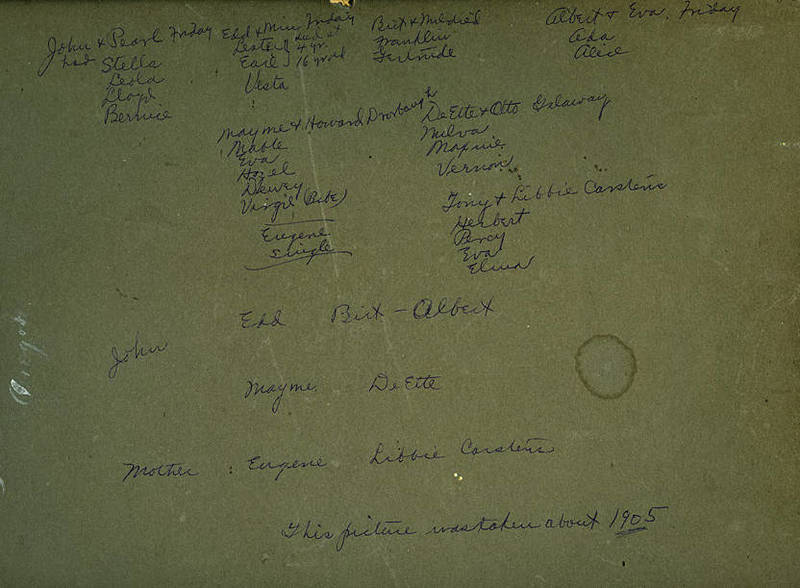 John & Pearl Friday
had Stella
Leola
Lloyd
Bernice
Edd & Min Friday
Lester } died at 4 yr.
Earl } 16 yr old
Vesta
Birt & Mildred
Franklin
Gertrude
Albert & Eva, Friday
Ada
Alice
Mayme & Howard Drorbaugh
Mable
Eva
Hazel
Dewey
Virgil (Babe)
Eugene
Single
DeEtte & Otto Galaway
Milva
Maxine
Vernon
Tony & Libbie Carstens
Herbert
Percy
Eva
Elma
Edd Birt - Albert
John
Mayme DeEtte
Mother : Eugene Libbie Carstens
This picture was taken about 1905